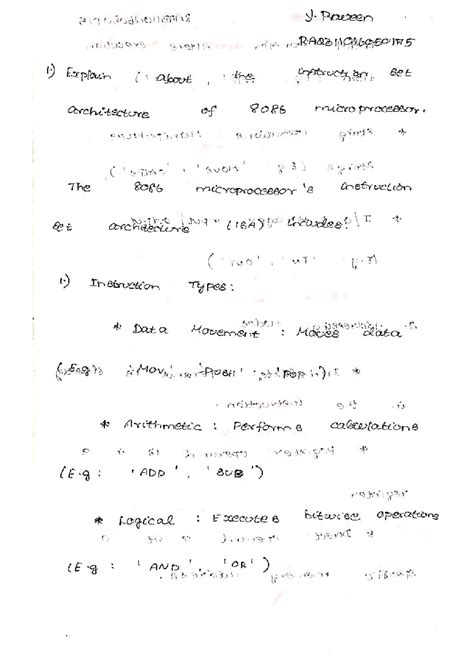 Y. Praveen
1.) Explain about the instruction set
architecture of 8086 microprocessor.
The 8086 microprocessor's instruction
set architecture (ISA) includes:
1.) Instruction Types:
* Data Movement : Moves data
(E.g : 'MOV', 'PUSH', 'POP')
* Arithmetic : Performs calculations
(E.g : 'ADD', 'SUB')
* Logical : Executes bitwise operations
(E.g : 'AND', 'OR')